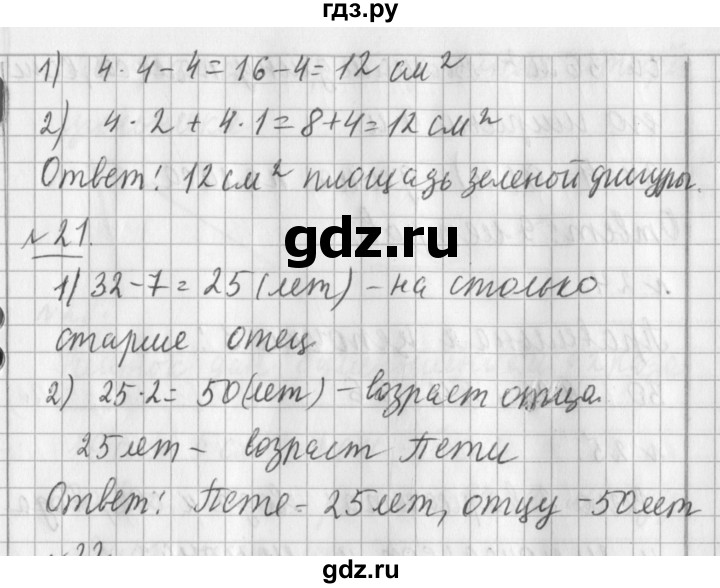 гдз.ру
1) 4·4-4=16-4=12 см²
2) 4·2+4·1=8+4=12 см²
Ответ: 12 см² площадь зеленой фигуры.
gdz.ru
№21.
1) 32-7=25 (лет) - на столько
старше отец
2) 25·2= 50 (лет) - возраст отца.
25 лет - возраст Пети
Ответ: Пете - 25 лет, отцу - 50 лет
№22.
gdz.ru